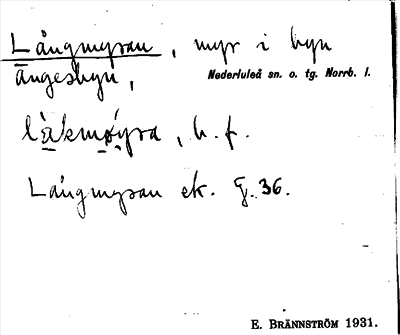 Långmyran, myr i byn
Ängesbyn, Nederluleå sn. o. tg. Norrb. l.
làkmøyra, b. f.
Långmyran ek. G. 36.
E. BRÄNNSTRÖM 1931.